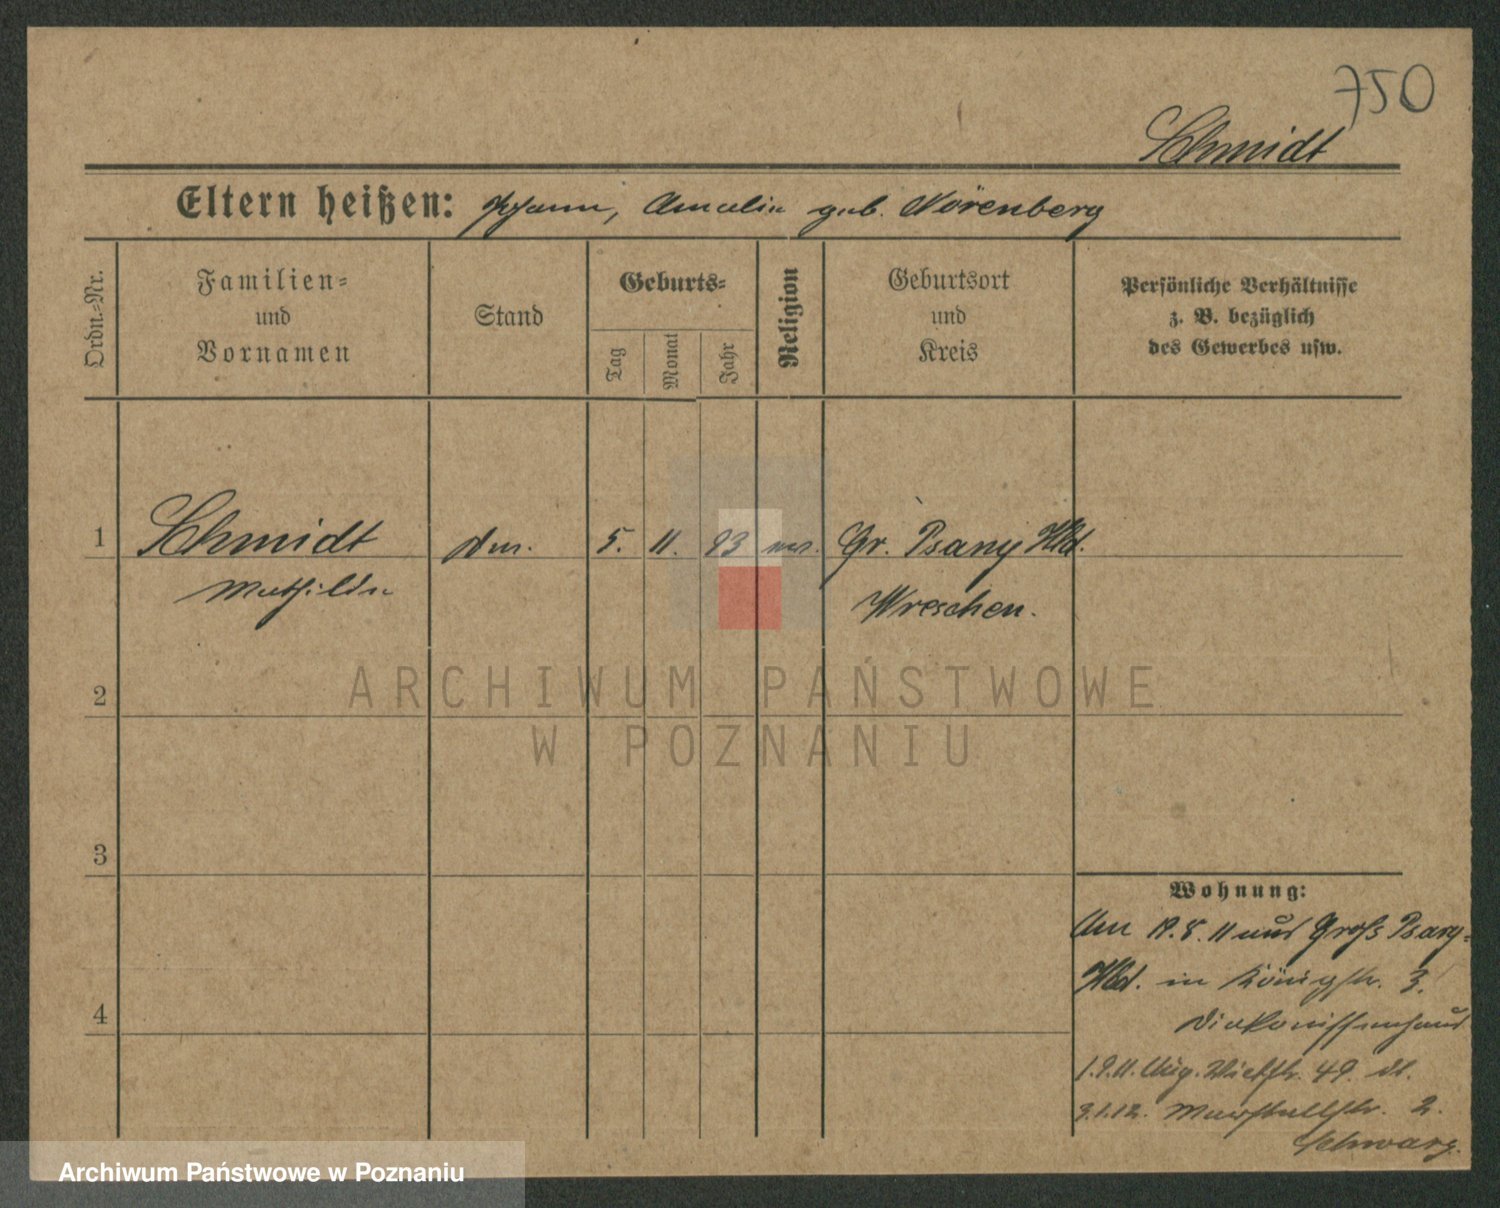 750
Schmidt
Eltern heißen: Johann, Amalie geb. Nörenberg
Ordn.-Nr.
Familien-
und
Vornamen
Stand
Geburts-
Tag
Monat
Jahr
Religion
Geburtsort
und
Kreis
Persönliche Verhältnisse
z. B. bezüglich
des Gewerbes usw.
1 Schmidt 5. 11. 93 Gr. Psary Hld.
Mathilde Wreschen.
2
3
4
Wohnung:
Am 18.8.11 aus Groß Psary-
Hld. in Königstr. 3.
Diakonissenhaus
1.9.11. Aug. Viktstr. 49. dt.
3.1.12. Marstallstr. 2.
Schwarz.
ARCHIWUM PAŃSTWOWE
W POZNANIU
Archiwum Państwowe w Poznaniu